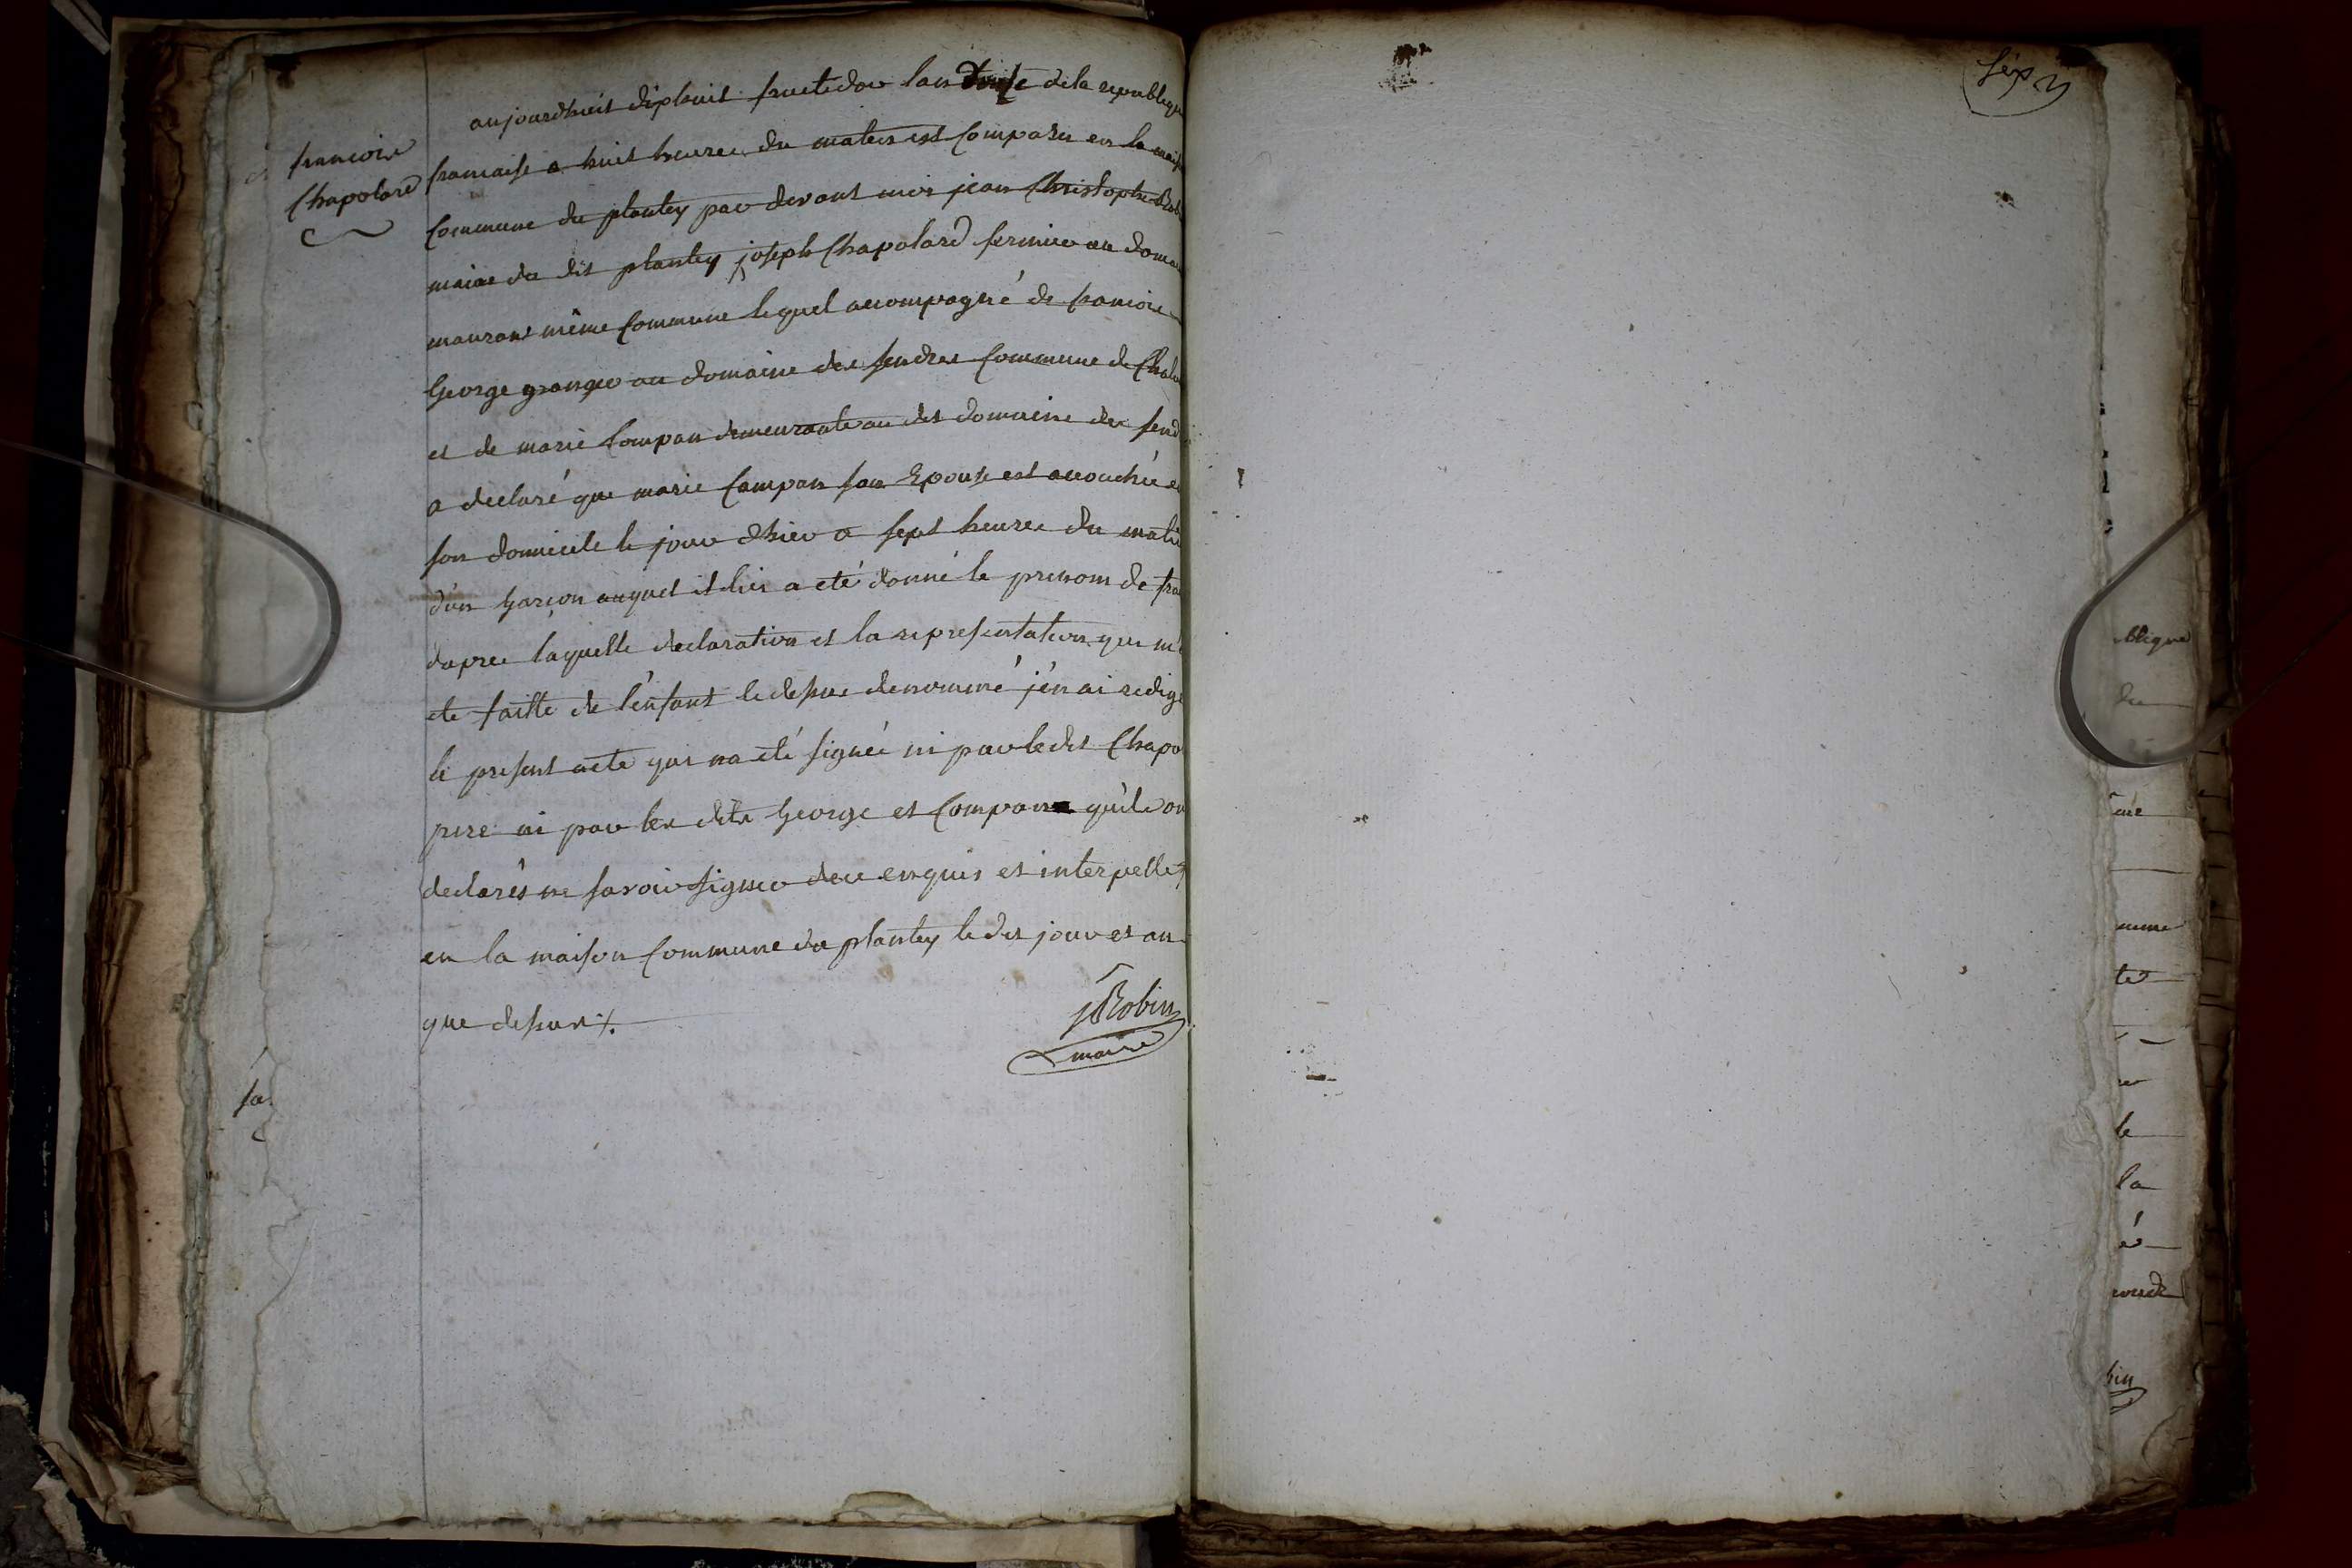 francois
Chapolard
aujourdhuit diphuit fructidor lan de la republique
francaise a huit heures du matin est Comparu en la maison
Commune du plantey par devant moi jean Christophe Rob
maire du dit plantey joseph Chapolard fermier au doma
même Commune lequel accompagné de francois
George granger au domaine des fendres Commune de Chala
et de marie Compan demeurante au dit domaine des fend
a declaré que marie Compan son Epouse est accouchée e
son domicile le jour dhier a sept heures du mati
d'un garçon auquel il lui a eté donné le prenom de fra
dapres laquelle declaration et la representation qui m'
ete faitte de l'enfant ledesus denommé j'en ai redigé
le present acte qui na eté signée ni par le dit Chapo
pere ni par les dits George et Compan qu'ils on
declarés ne savoir signer de ce enquis et interpellés
en la maison Commune du plantey le dit jour et an
que desus ·/.
jRobin
maire
sept
blique
du
aire
mme
te
le
la
bin